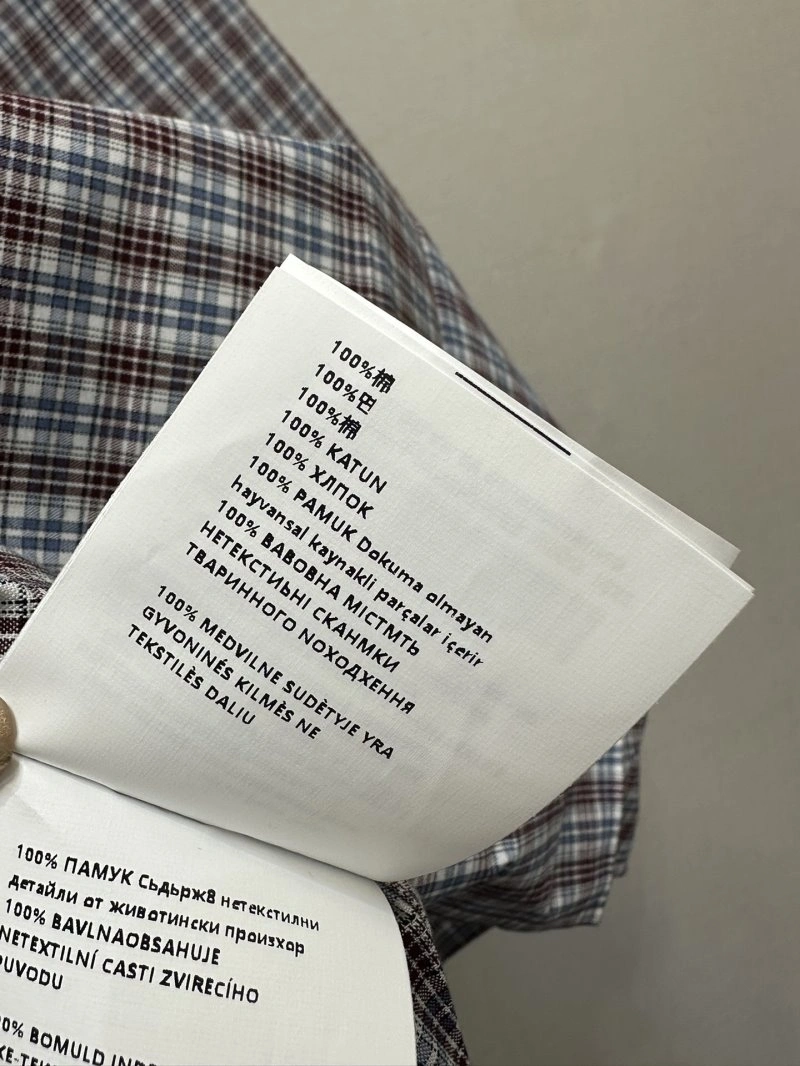 100%棉
100%면
100%棉
100% KATUN
100% ХЛПОК
100% PAMUK Dokuma olmayan
hayvansal kaynakli parçalar içerir
100% BABOBHA MICTMTЬ
НЕТЕКСТИЬНІ СКАНМКИ
ТВАРИННОГО NОХОДХЕННЯ
100% MEDVILNE SUDĖTYJE YRA
GYVONINÉS KILMÈS NE
TEKSTILÈS DALIU
100% ПАМУК Сьдьрж8 нетекстилни
детайли от животински произхор
100% BAVLNAOBSAHUJE
NETEXTILNÍ CASTI ZVIRECÍHO
PUVODU
0% BOMULD